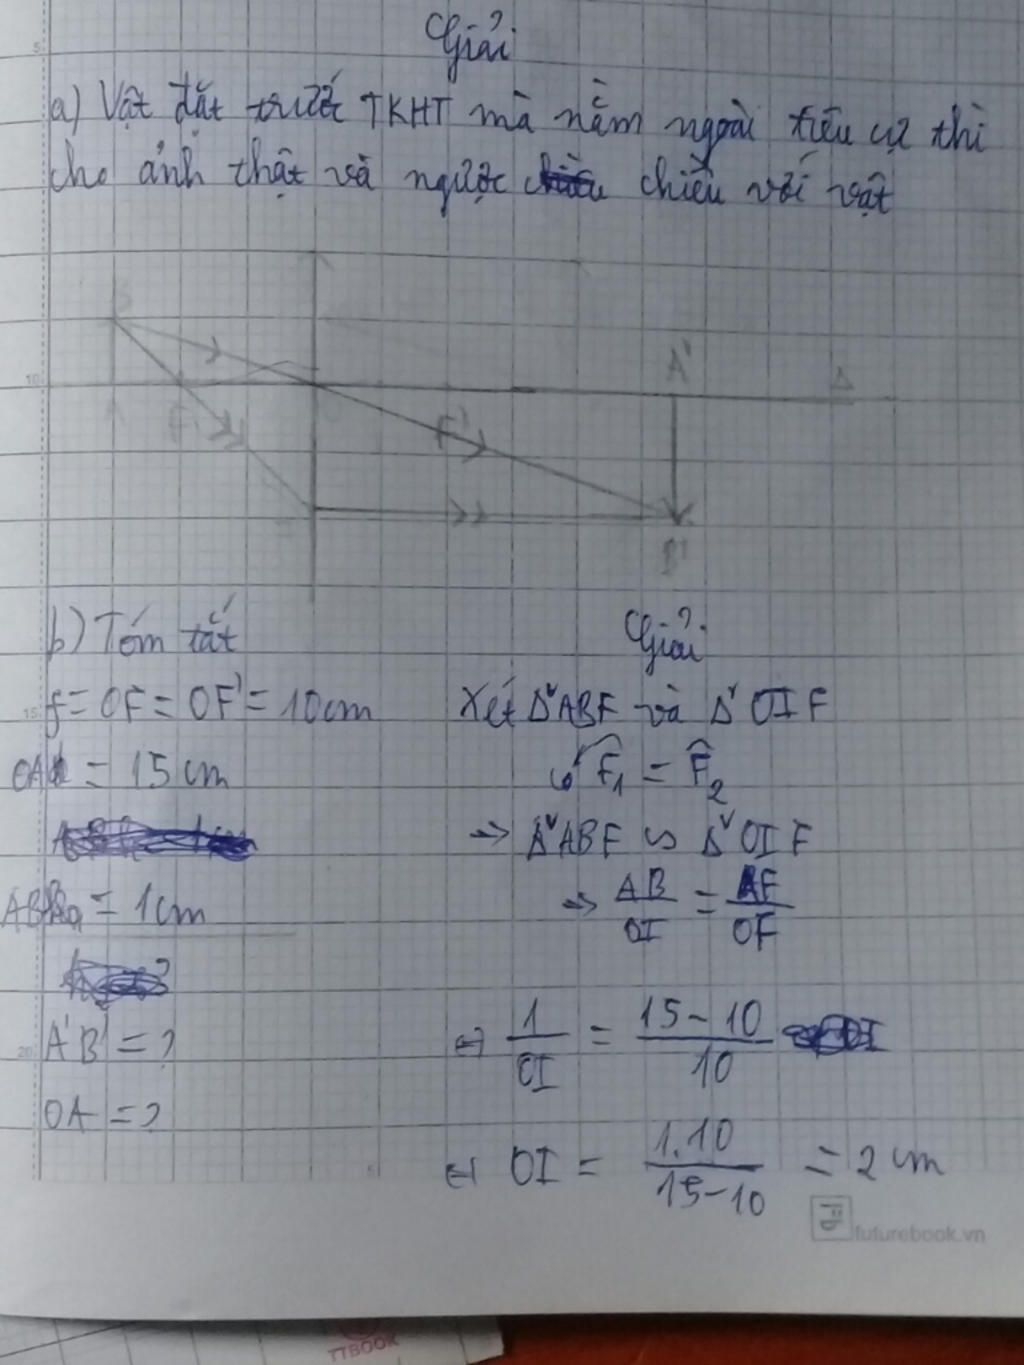 Giải
a) Vật đặt trước TKHT mà nằm ngoài tiêu cự thì
cho ảnh thật và ngược chiều với vật
B
A'
Δ
A
F
O
F'
I
B'
b) Tóm tắt
f = OF = OF' = 10cm
OA = 15 cm
AB = 1cm
A'B' = ?
OA = ?
Giải
Xét Δ ABF và Δ OIF
có F̂₁ = F̂₂
=> Δ ABF ∽ Δ OIF
=> AB/OI = AF/OF
<=> 1/OI = (15-10)/10
<=> OI = 1.10/(15-10) = 2 cm
5
10
15
20
5
futurebook.vn
TTBOOK